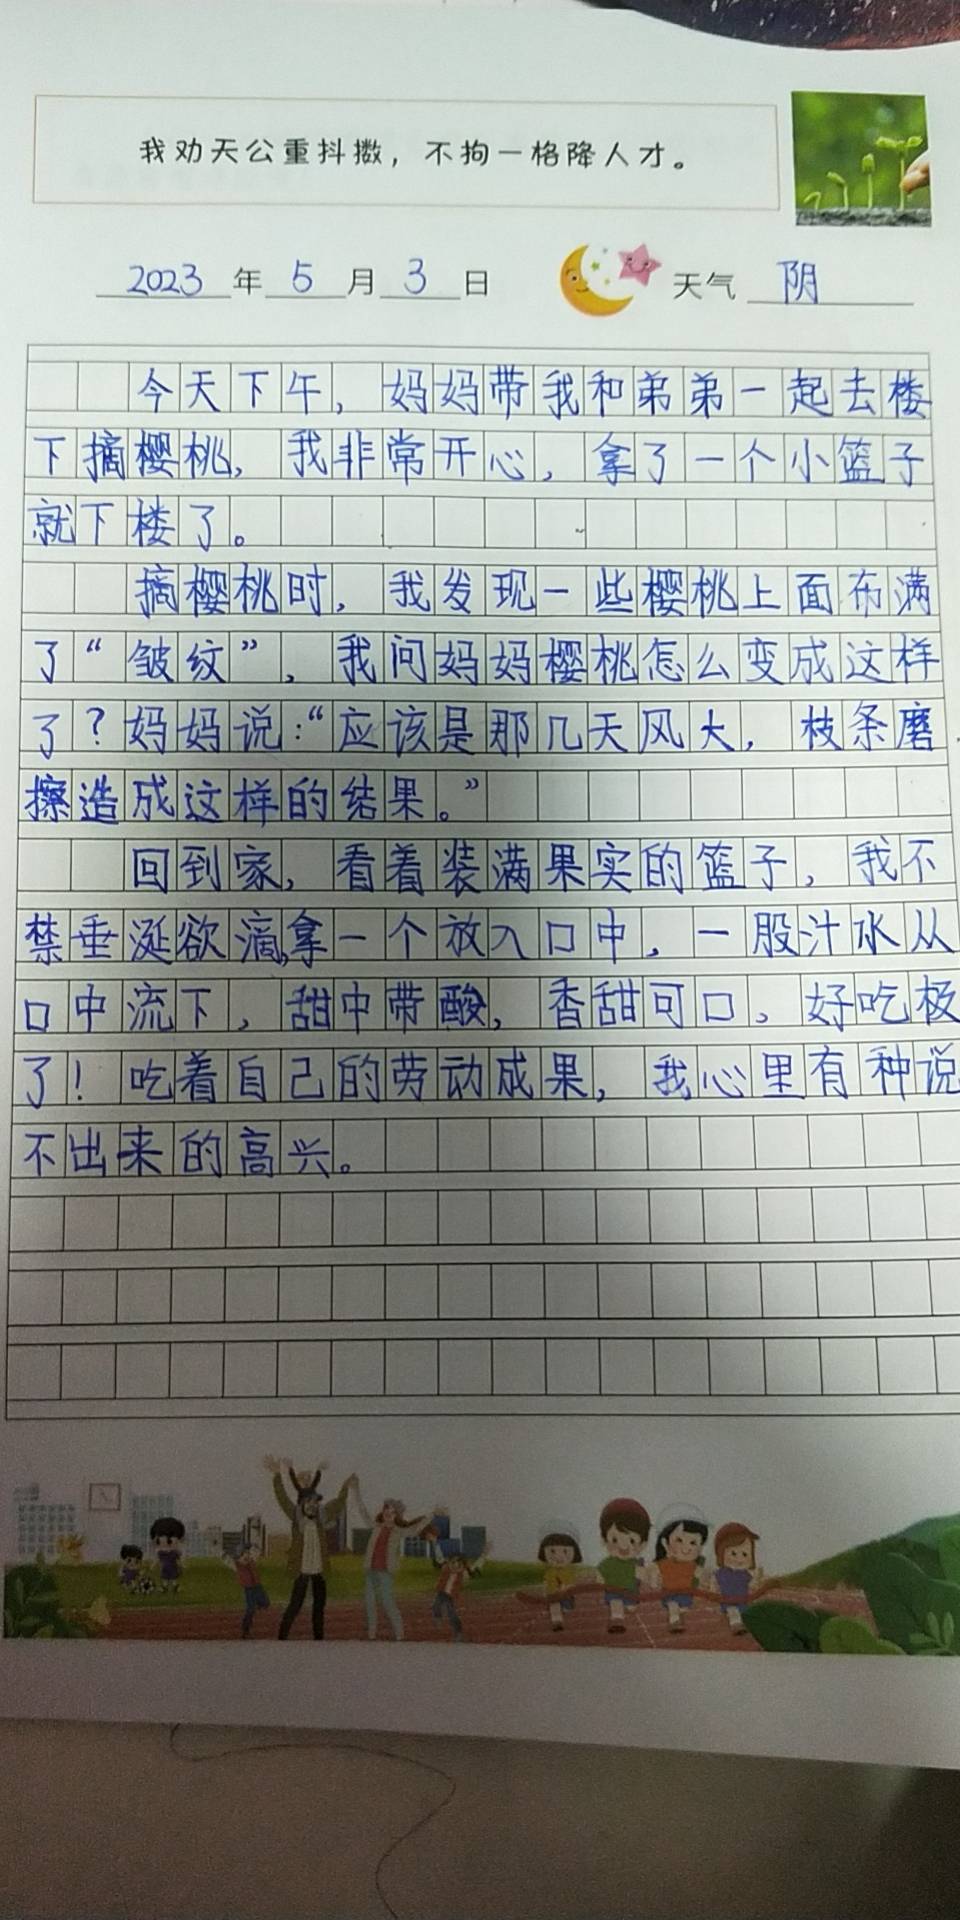 我劝天公重抖擞，不拘一格降人才。
2023年5月3日 天气 阴
今天下午，妈妈带我和弟弟一起去楼
下摘樱桃，我非常开心，拿了一个小篮子
就下楼了。
摘樱桃时，我发现一些樱桃上面布满
了“皱纹”，我问妈妈樱桃怎么变成这样
了？妈妈说：“应该是那几天风大，枝条磨
擦造成这样的结果。”
回到家，看着装满果实的篮子，我不
禁垂涎欲滴，拿一个放入口中，一股汁水从
口中流下，甜中带酸，香甜可口，好吃极
了！吃着自己的劳动成果，我心里有种说
不出来的高兴。